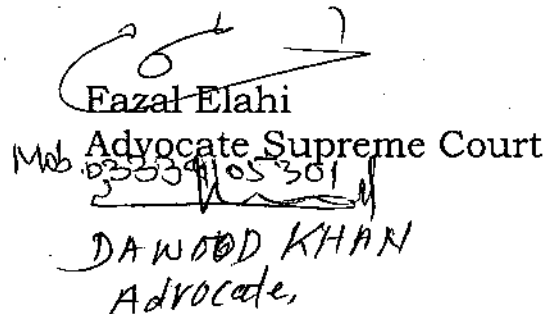 Fazal Elahi
Advocate Supreme Court
Mob.
DAWOOD KHAN
Advocate,